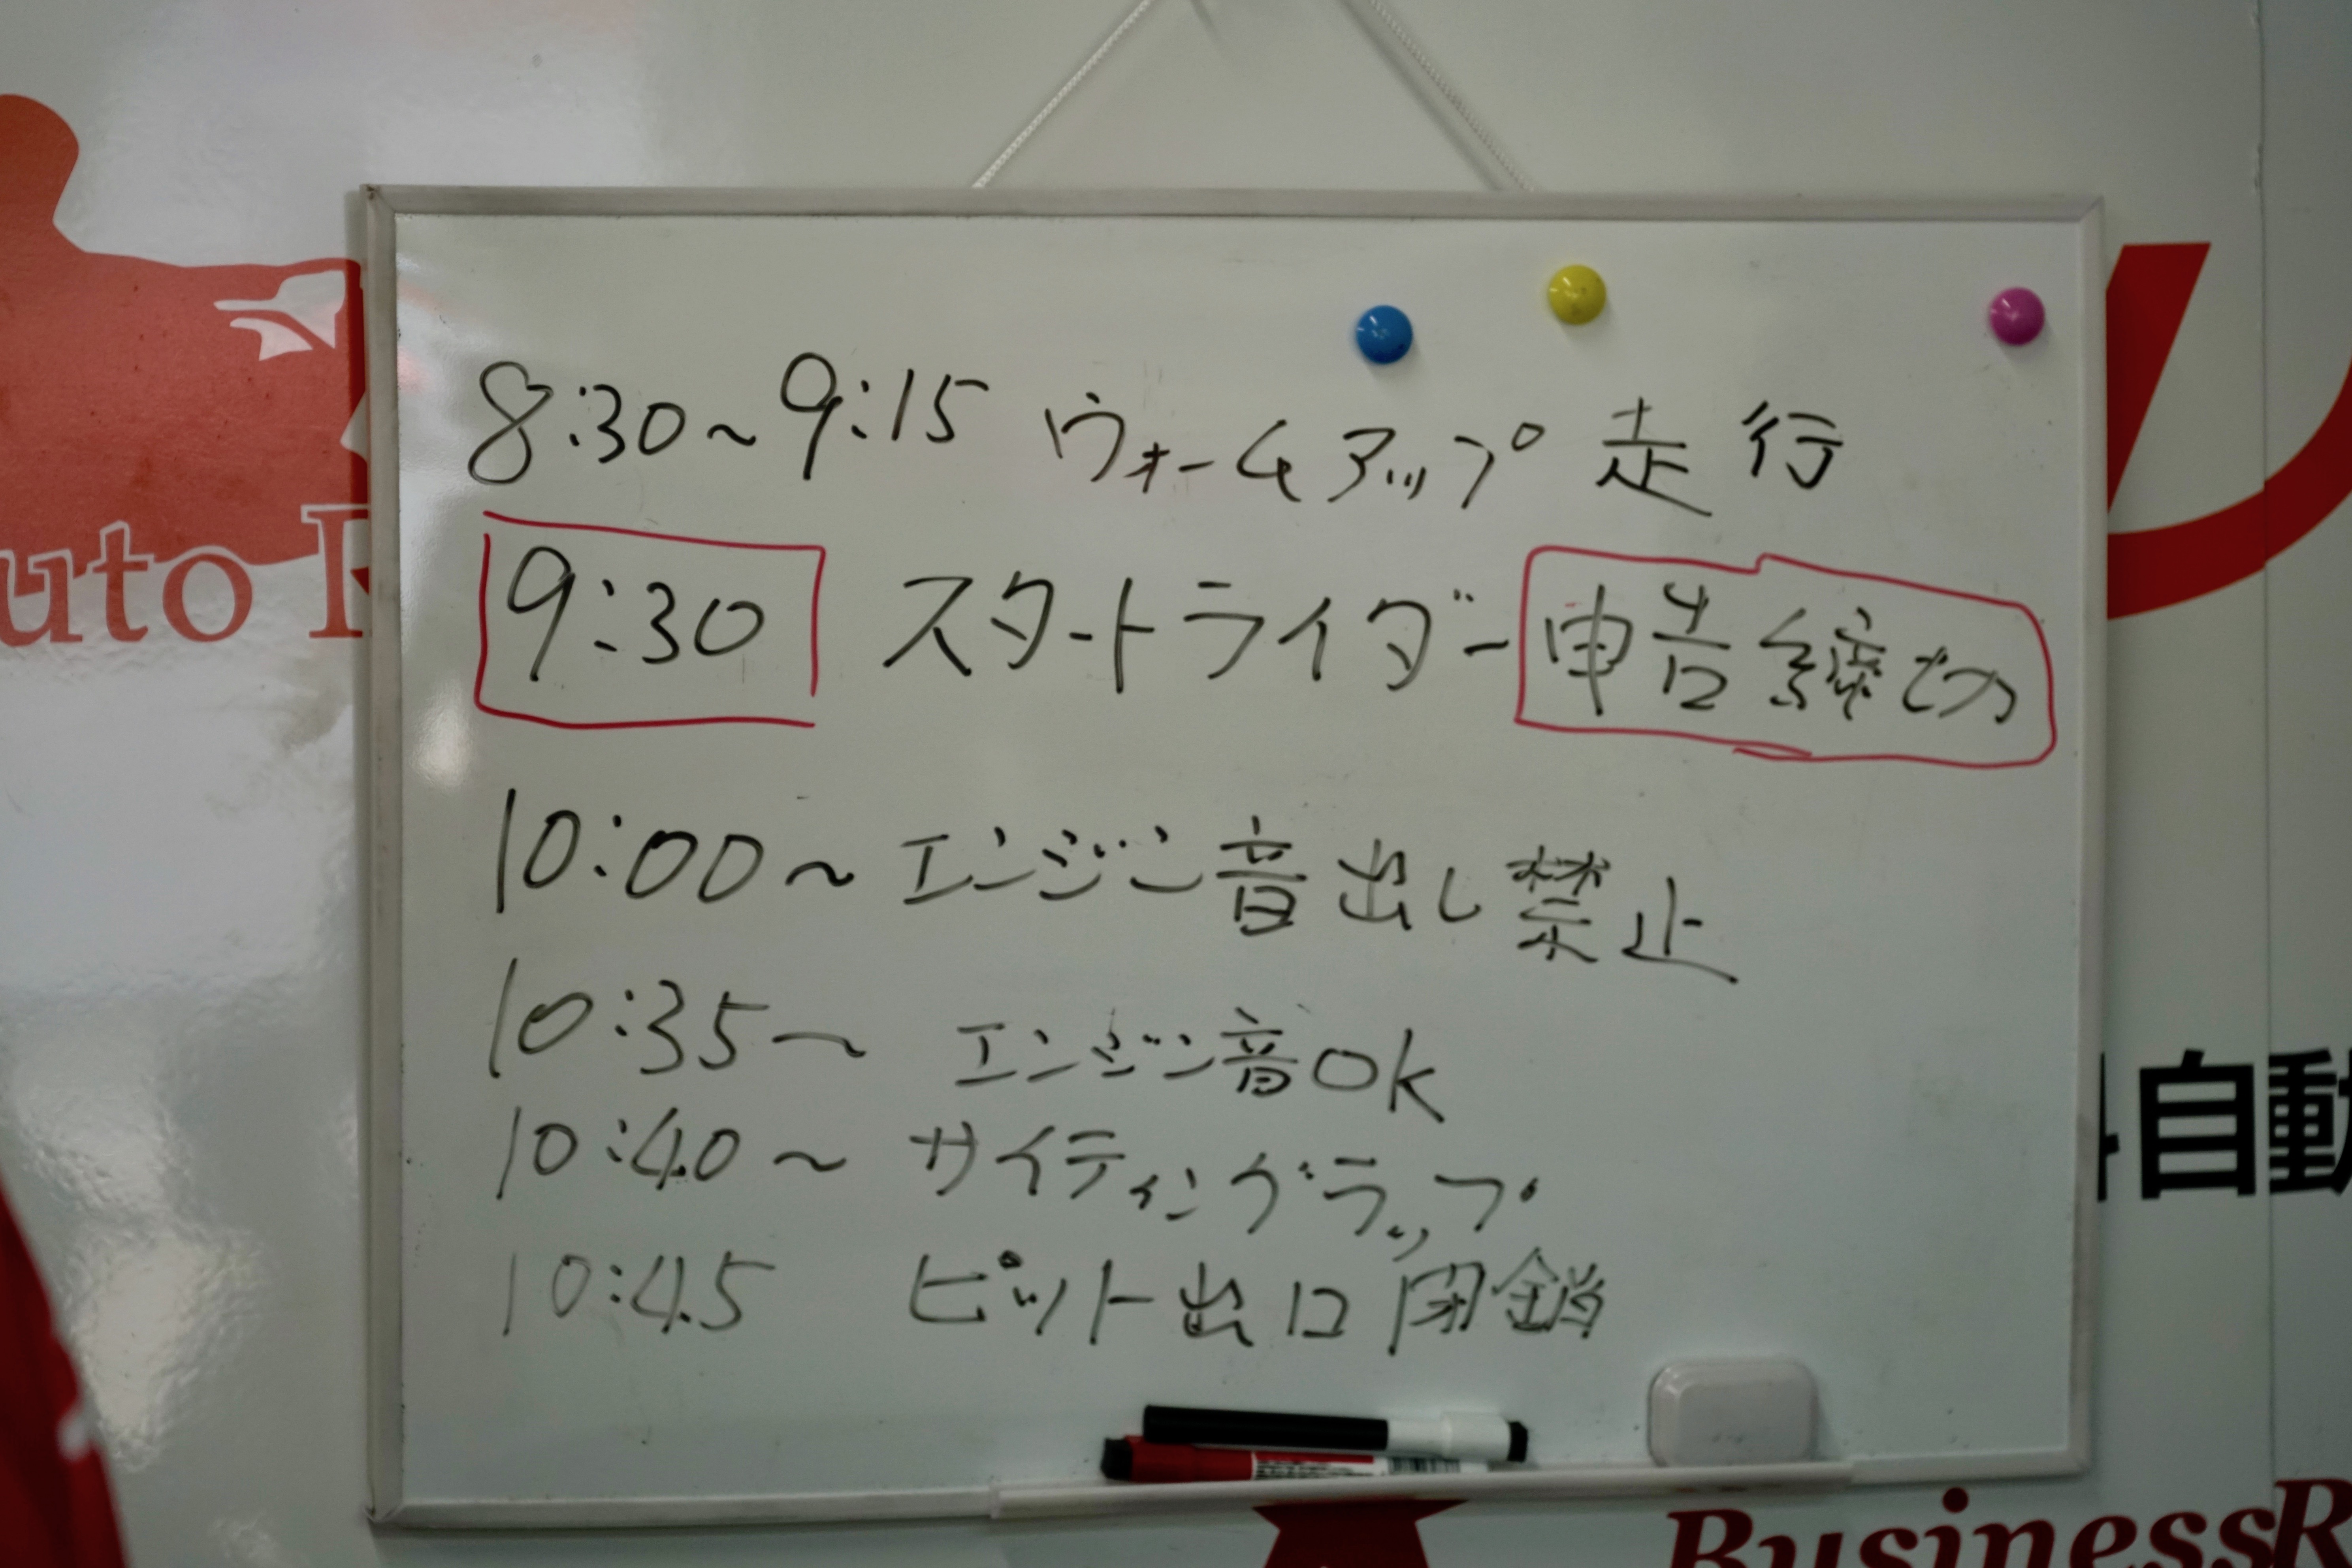 8:30〜9:15 ウォームアップ 走行
9:30 スタートライダー申告締切
10:00〜エンジン音出し禁止
10:35〜 エンジン音OK
10:40〜 サイティングラップ
10:45 ピット出口閉鎖
uto
自動
Business